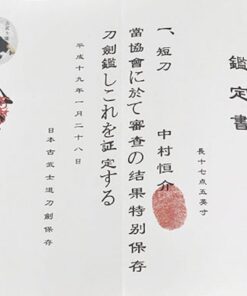 鑑定書
長十七点五英寸
一、短刀 中村恒介
當協會に於て審查の結果特別保存
刀劍鑑しこれを証定する
平成十九年一月二十八日
日本古武士道刀劍保存